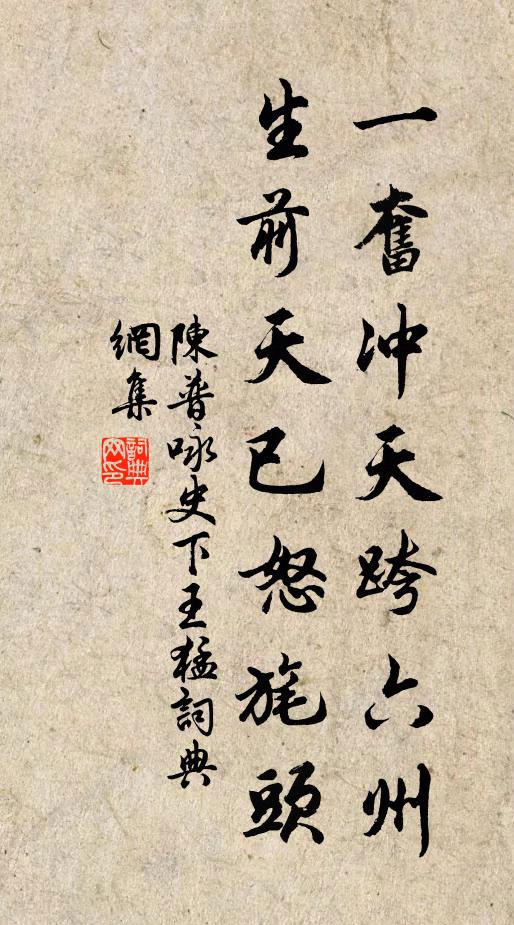 一奮冲天跨六州
生前天已怒旄頭
陳普咏史下王猛詞典
網集
詞典網印